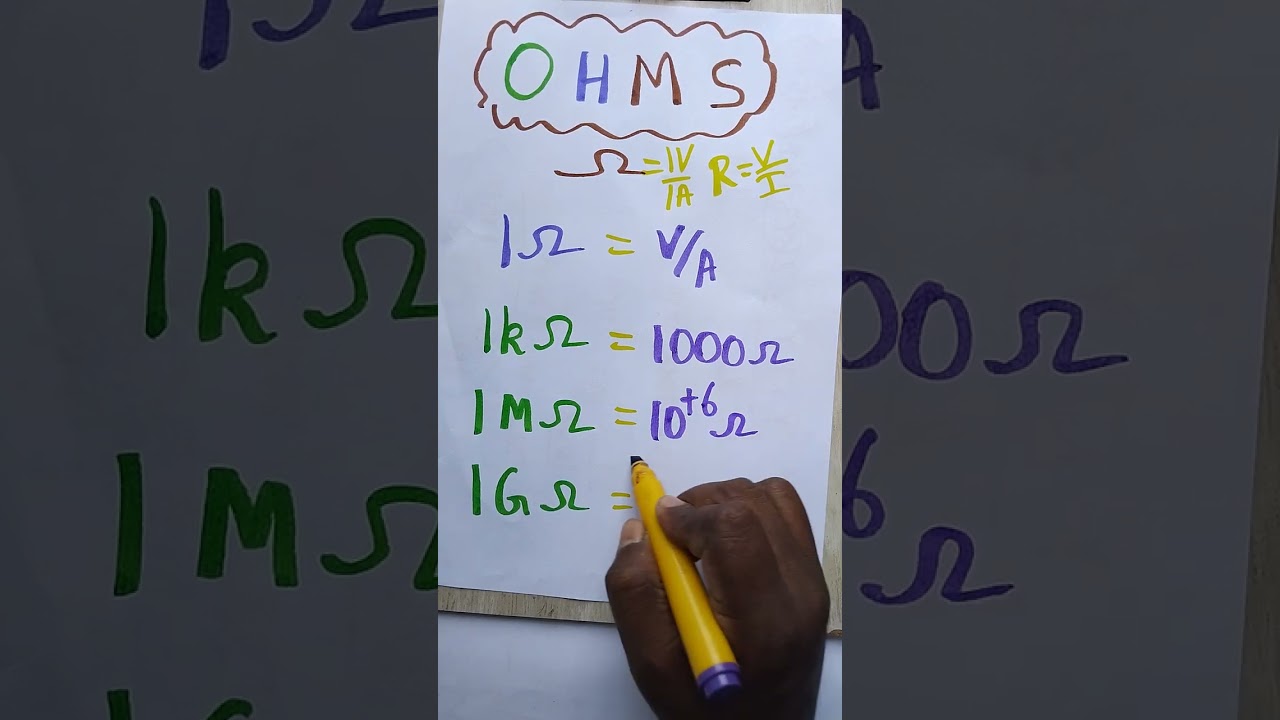 OHMS
Ω = 1V/1A R = V/I
1Ω = V/A
1kΩ = 1000Ω
1MΩ = 10⁺⁶Ω
1GΩ =